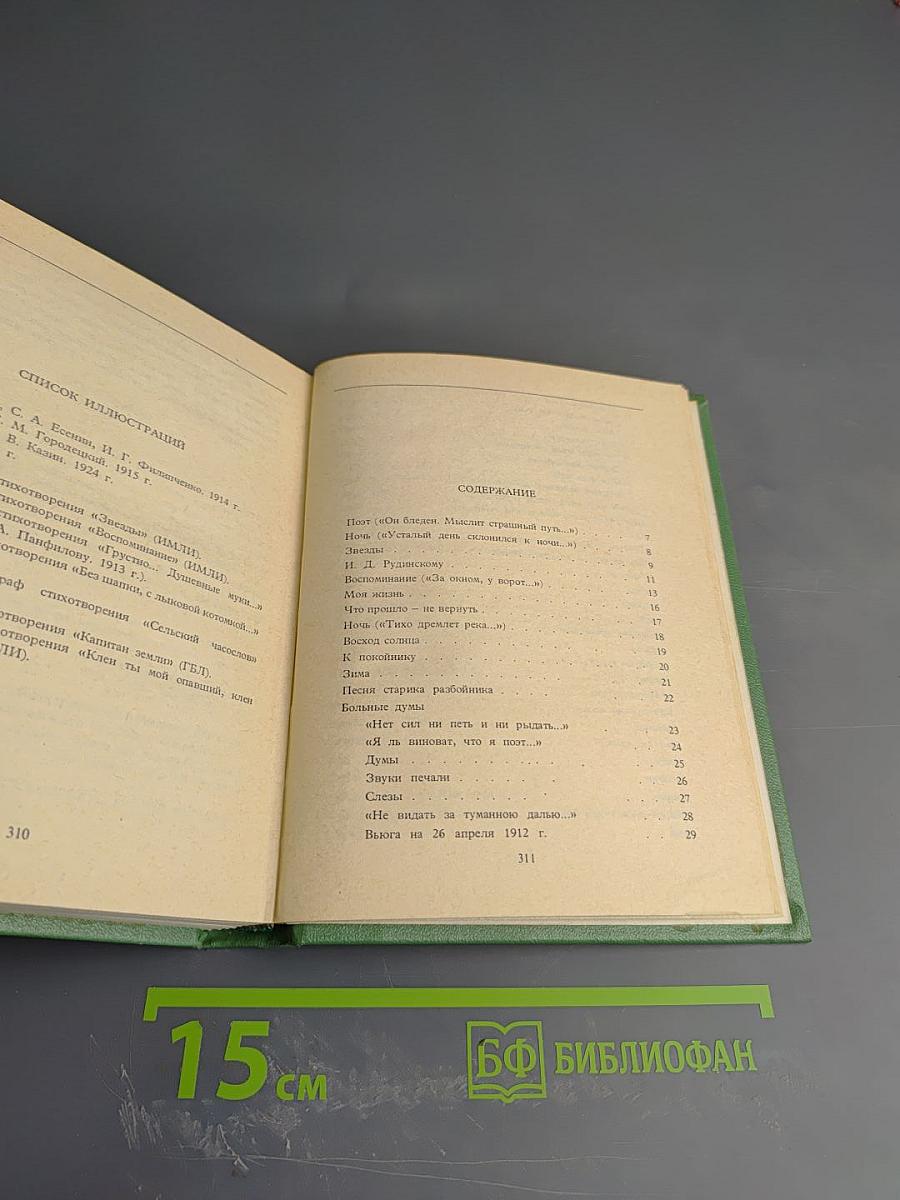 СПИСОК ИЛЛЮСТРАЦИЙ
С. А. Есенин, И. Г. Филипченко. 1914 г.
М. Городецкий. 1915 г.
В. Казин. 1924 г.
г.
стихотворения «Звезды» (ИМЛИ).
стихотворения «Воспоминание» (ИМЛИ).
стихотворения «Грустно... Душевные муки...»
А. Панфилову. 1913 г.).
«Без шапки, с лыковой котомкой...»
стихотворения «Сельский часослов»
«Капитан земли» (ГБЛ).
«Клен ты мой опавший, клен
310
СОДЕРЖАНИЕ
Поэт («Он бледен. Мыслит страшный путь...») 7
Ночь («Усталый день склонился к ночи...») 8
Звезды 9
И. Д. Рудинскому 11
Воспоминание («За окном, у ворот...») 13
Моя жизнь 16
Что прошло – не вернуть 17
Ночь («Тихо дремлет река...») 18
Восход солнца 19
К покойнику 20
Зима 21
Песня старика разбойника 22
Больные думы
«Нет сил ни петь и ни рыдать...» 23
«Я ль виноват, что я поэт...» 24
Думы 25
Звуки печали 26
Слезы 27
«Не видать за туманною далью...» 28
Вьюга на 26 апреля 1912 г. 29
311
15 см
БФ БИБЛИОФАН